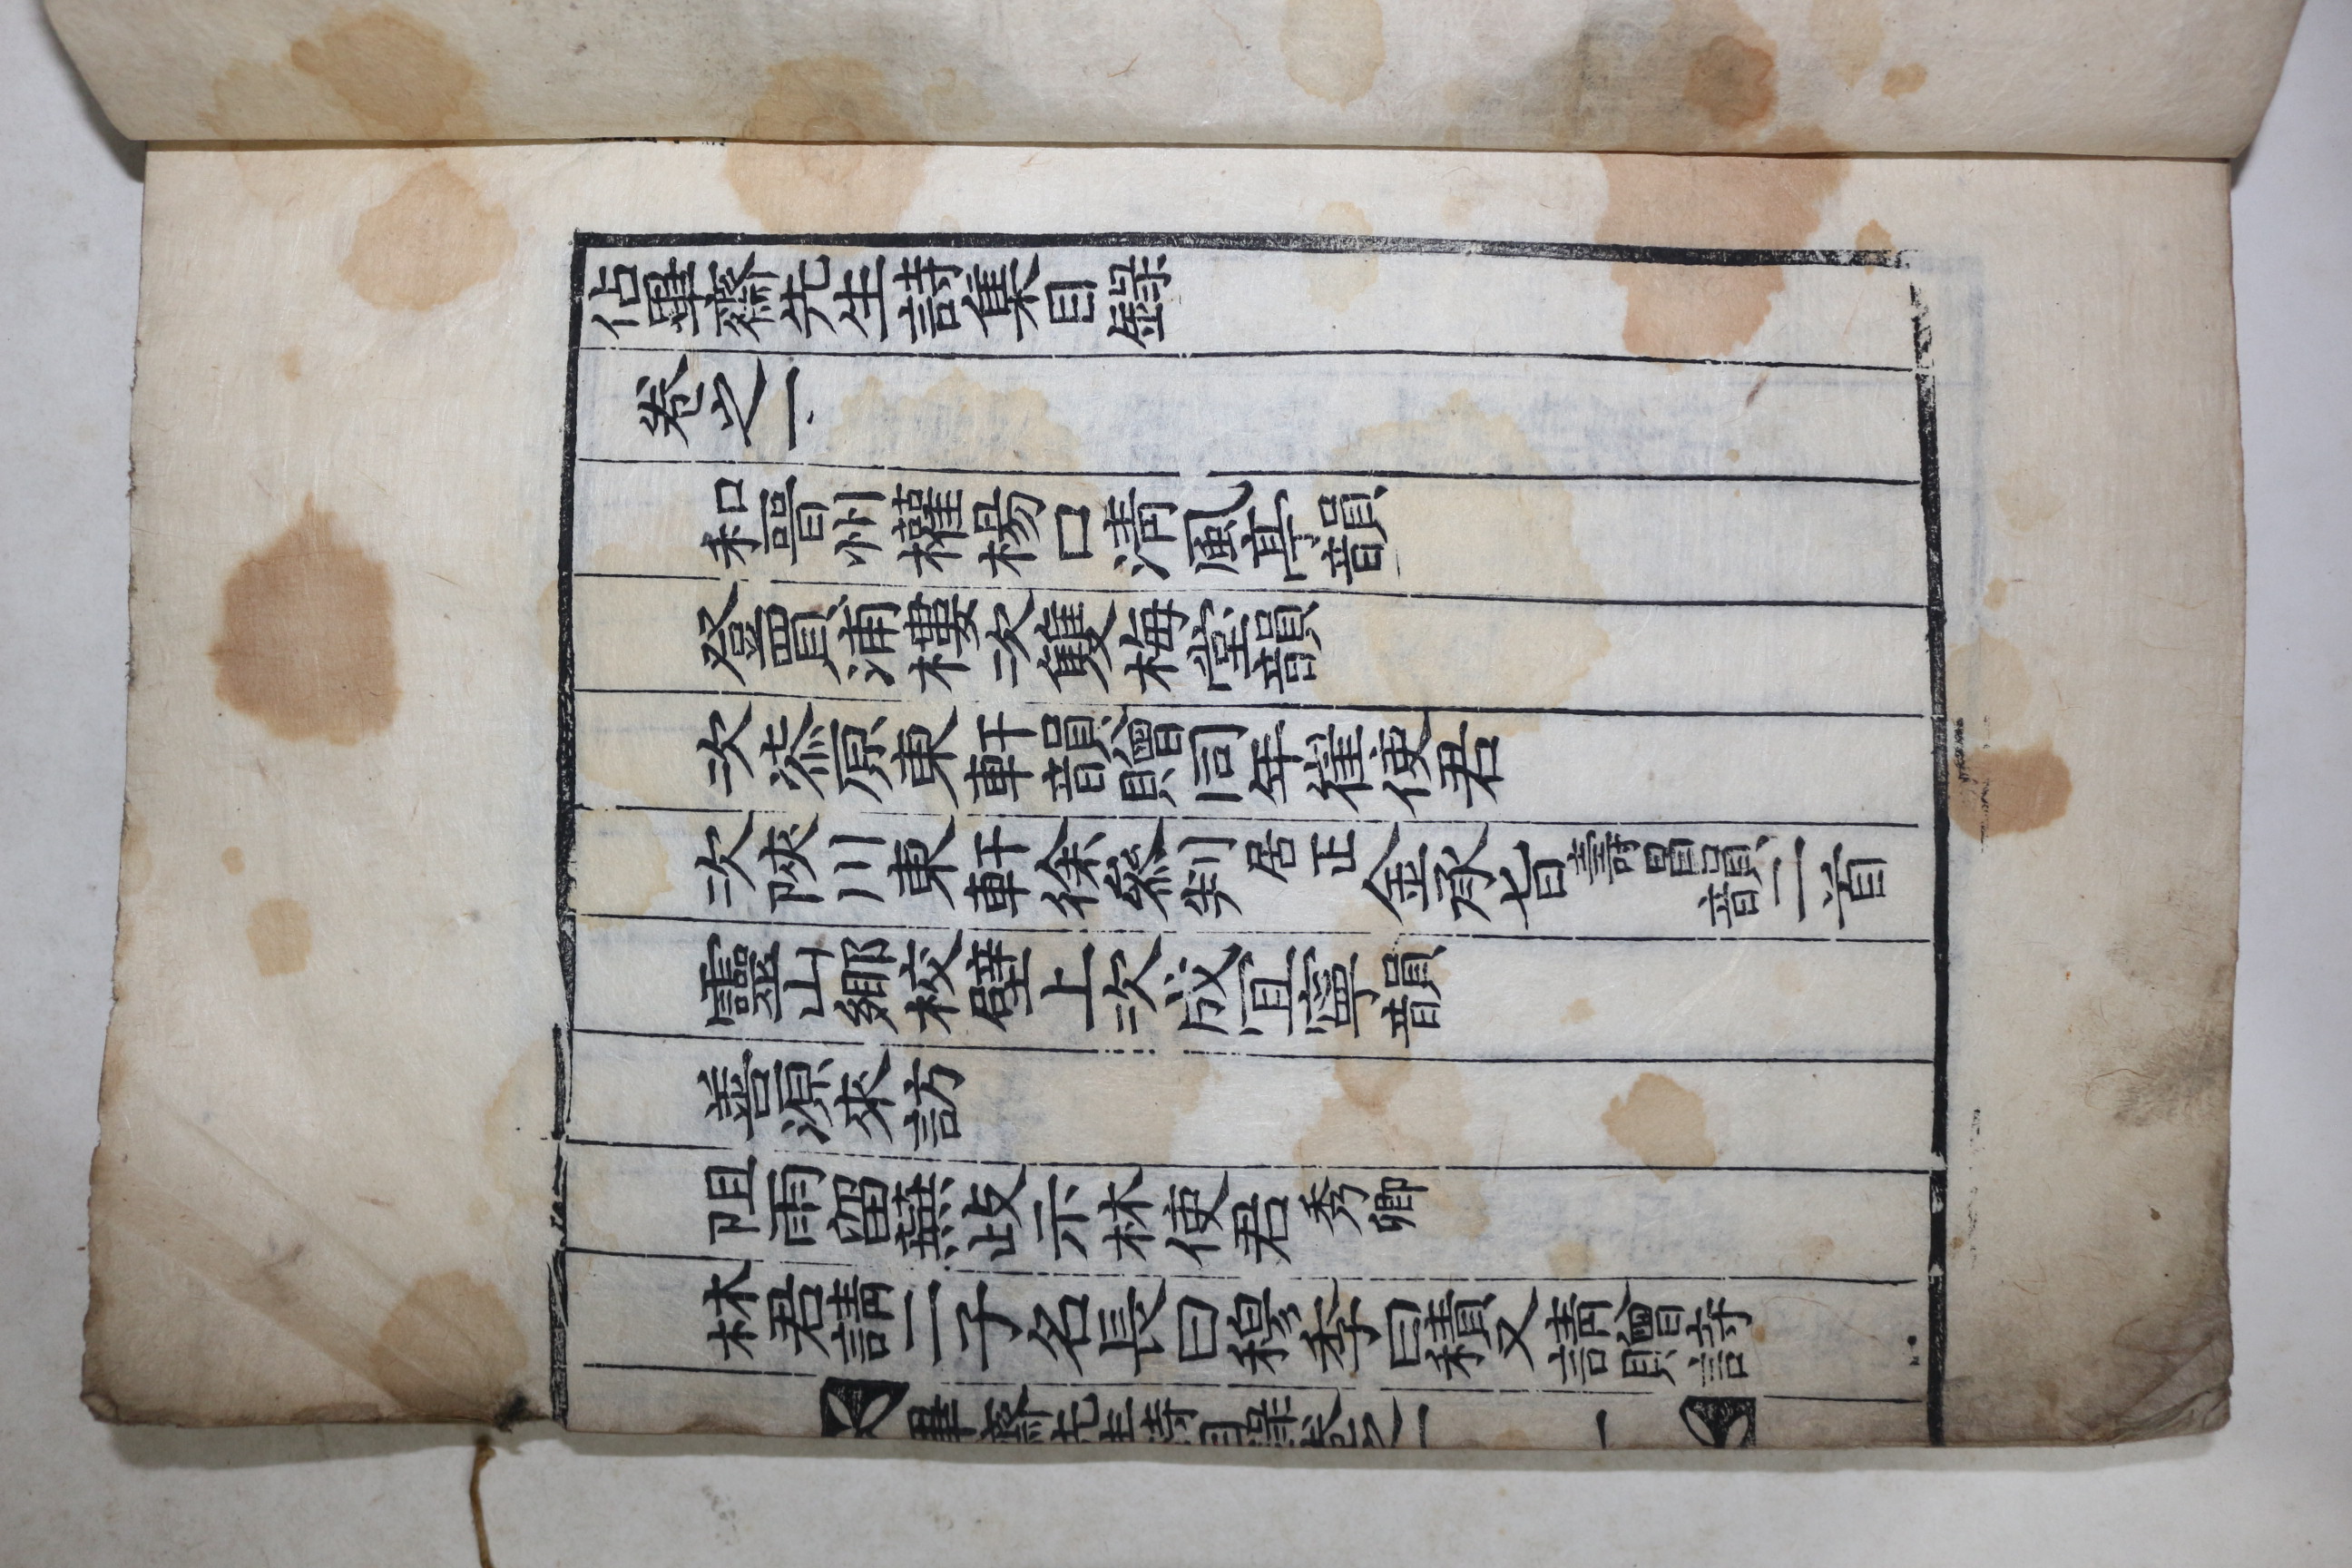 佔畢齋先生詩集目錄
卷之一
和晉州權楊口淸風亭韻
登買浦樓次雙梅堂韻
次桼原東軒韻贈同年崔使君
次陜川東軒徐叅判居正金承旨壽昌韻韻二首
靈山鄕校壁上次成冝寧韻
善源來訪
阻雨留蕪歧示林使君秀卿
林君請二子名長曰穆季曰積又請贈詩
畢齋先生詩目錄卷之一 一